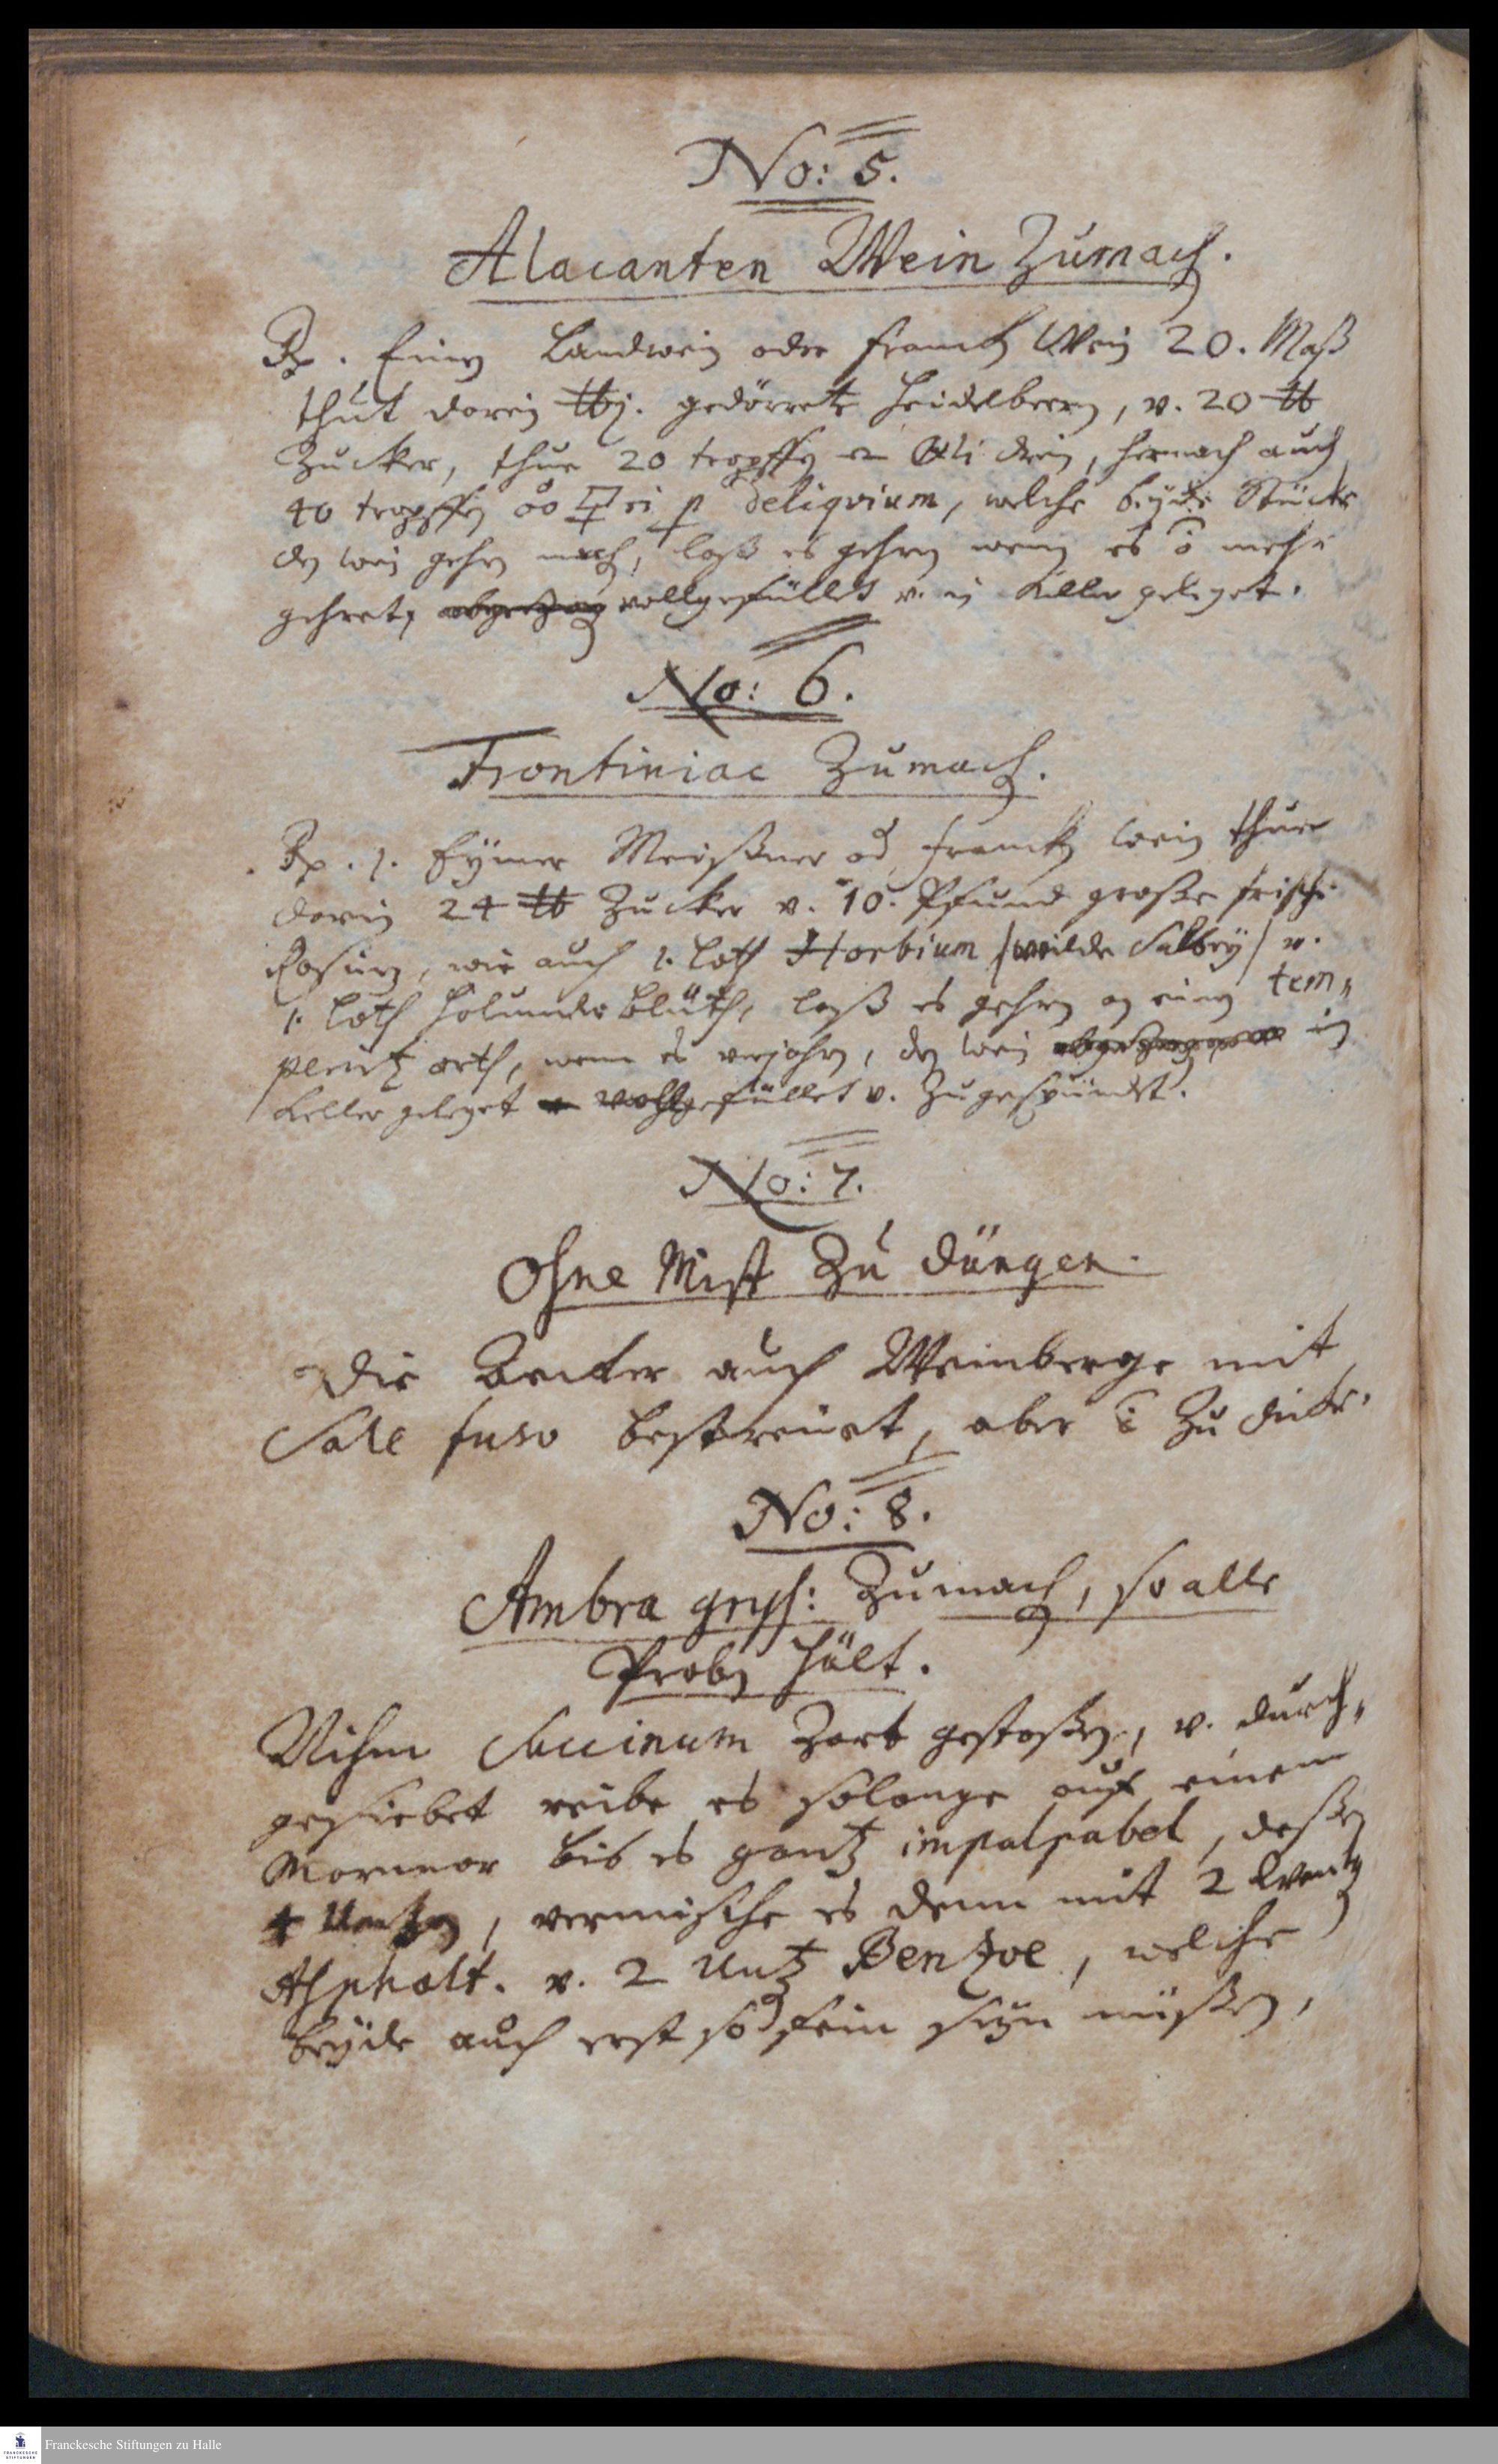 No: 5.
Alacanten Wein Zumach.
Rp. Einen Landwein oder Franck Wein 20. Maß
thut darein ℔j. gedörrete Heidelbeern, v. 20 ℔
Zucker, thue 20 tropffen Oli drein, hernach auch
40 tropffen p deliqvium, welche beÿde Stücke
den wein gehren mach, laß es gehren wenn es mehr
gehret, vollgefüllet v. in Keller geleget.
No: 6.
Frontiniac Zumach.
Rp. 1. Eÿmer Meißner od Franck wein thue
darein 24 ℔ Zucker v. 10. Pfund große frische
Rosinen, wie auch 1. loth Horbium /wilde Salbeÿ/ v.
1. loth Holunder blüth, laß es gehren an einen tem„
perirtz orth, wenn es verjohren, den wein in
Keller geleget vollgefüllet v. Zugespündet.
No: 7.
Ohne Mist Zu düngen.
Die Aecker auch Weinberge mit
Sale fuso bestreuet, aber Zu dicke.
No: 8.
Ambra grys: Zumach, so alle
Proben hält.
Nihm Succinum Zart gestoßen, v. durch„
gesiebet reibe es solange auf einem
Marmor bis es gantz impalpabel, deßen
4 Untzen, vermische es denn mit 2 Quentz
Asphalt. v. 2 Untz Bentzoe, welche
beÿde auch erst so fein seÿn müßen,
Franckesche Stiftungen zu Halle